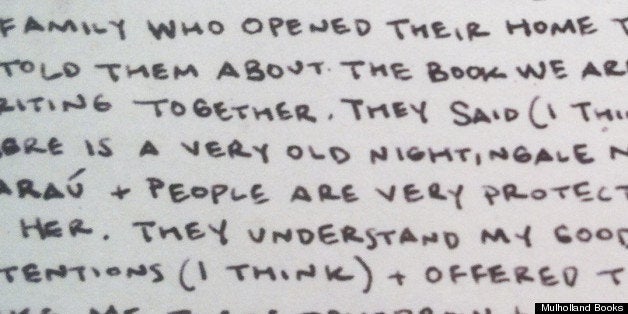 FAMILY WHO OPENED THEIR HOME T
TOLD THEM ABOUT THE BOOK WE AR
RITING TOGETHER. THEY SAID (I THI
ERE IS A VERY OLD NIGHTINGALE N
ARAÚ + PEOPLE ARE VERY PROTECT
HER. THEY UNDERSTAND MY GOOD
TENTIONS (I THINK) + OFFERED T
Mulholland Books